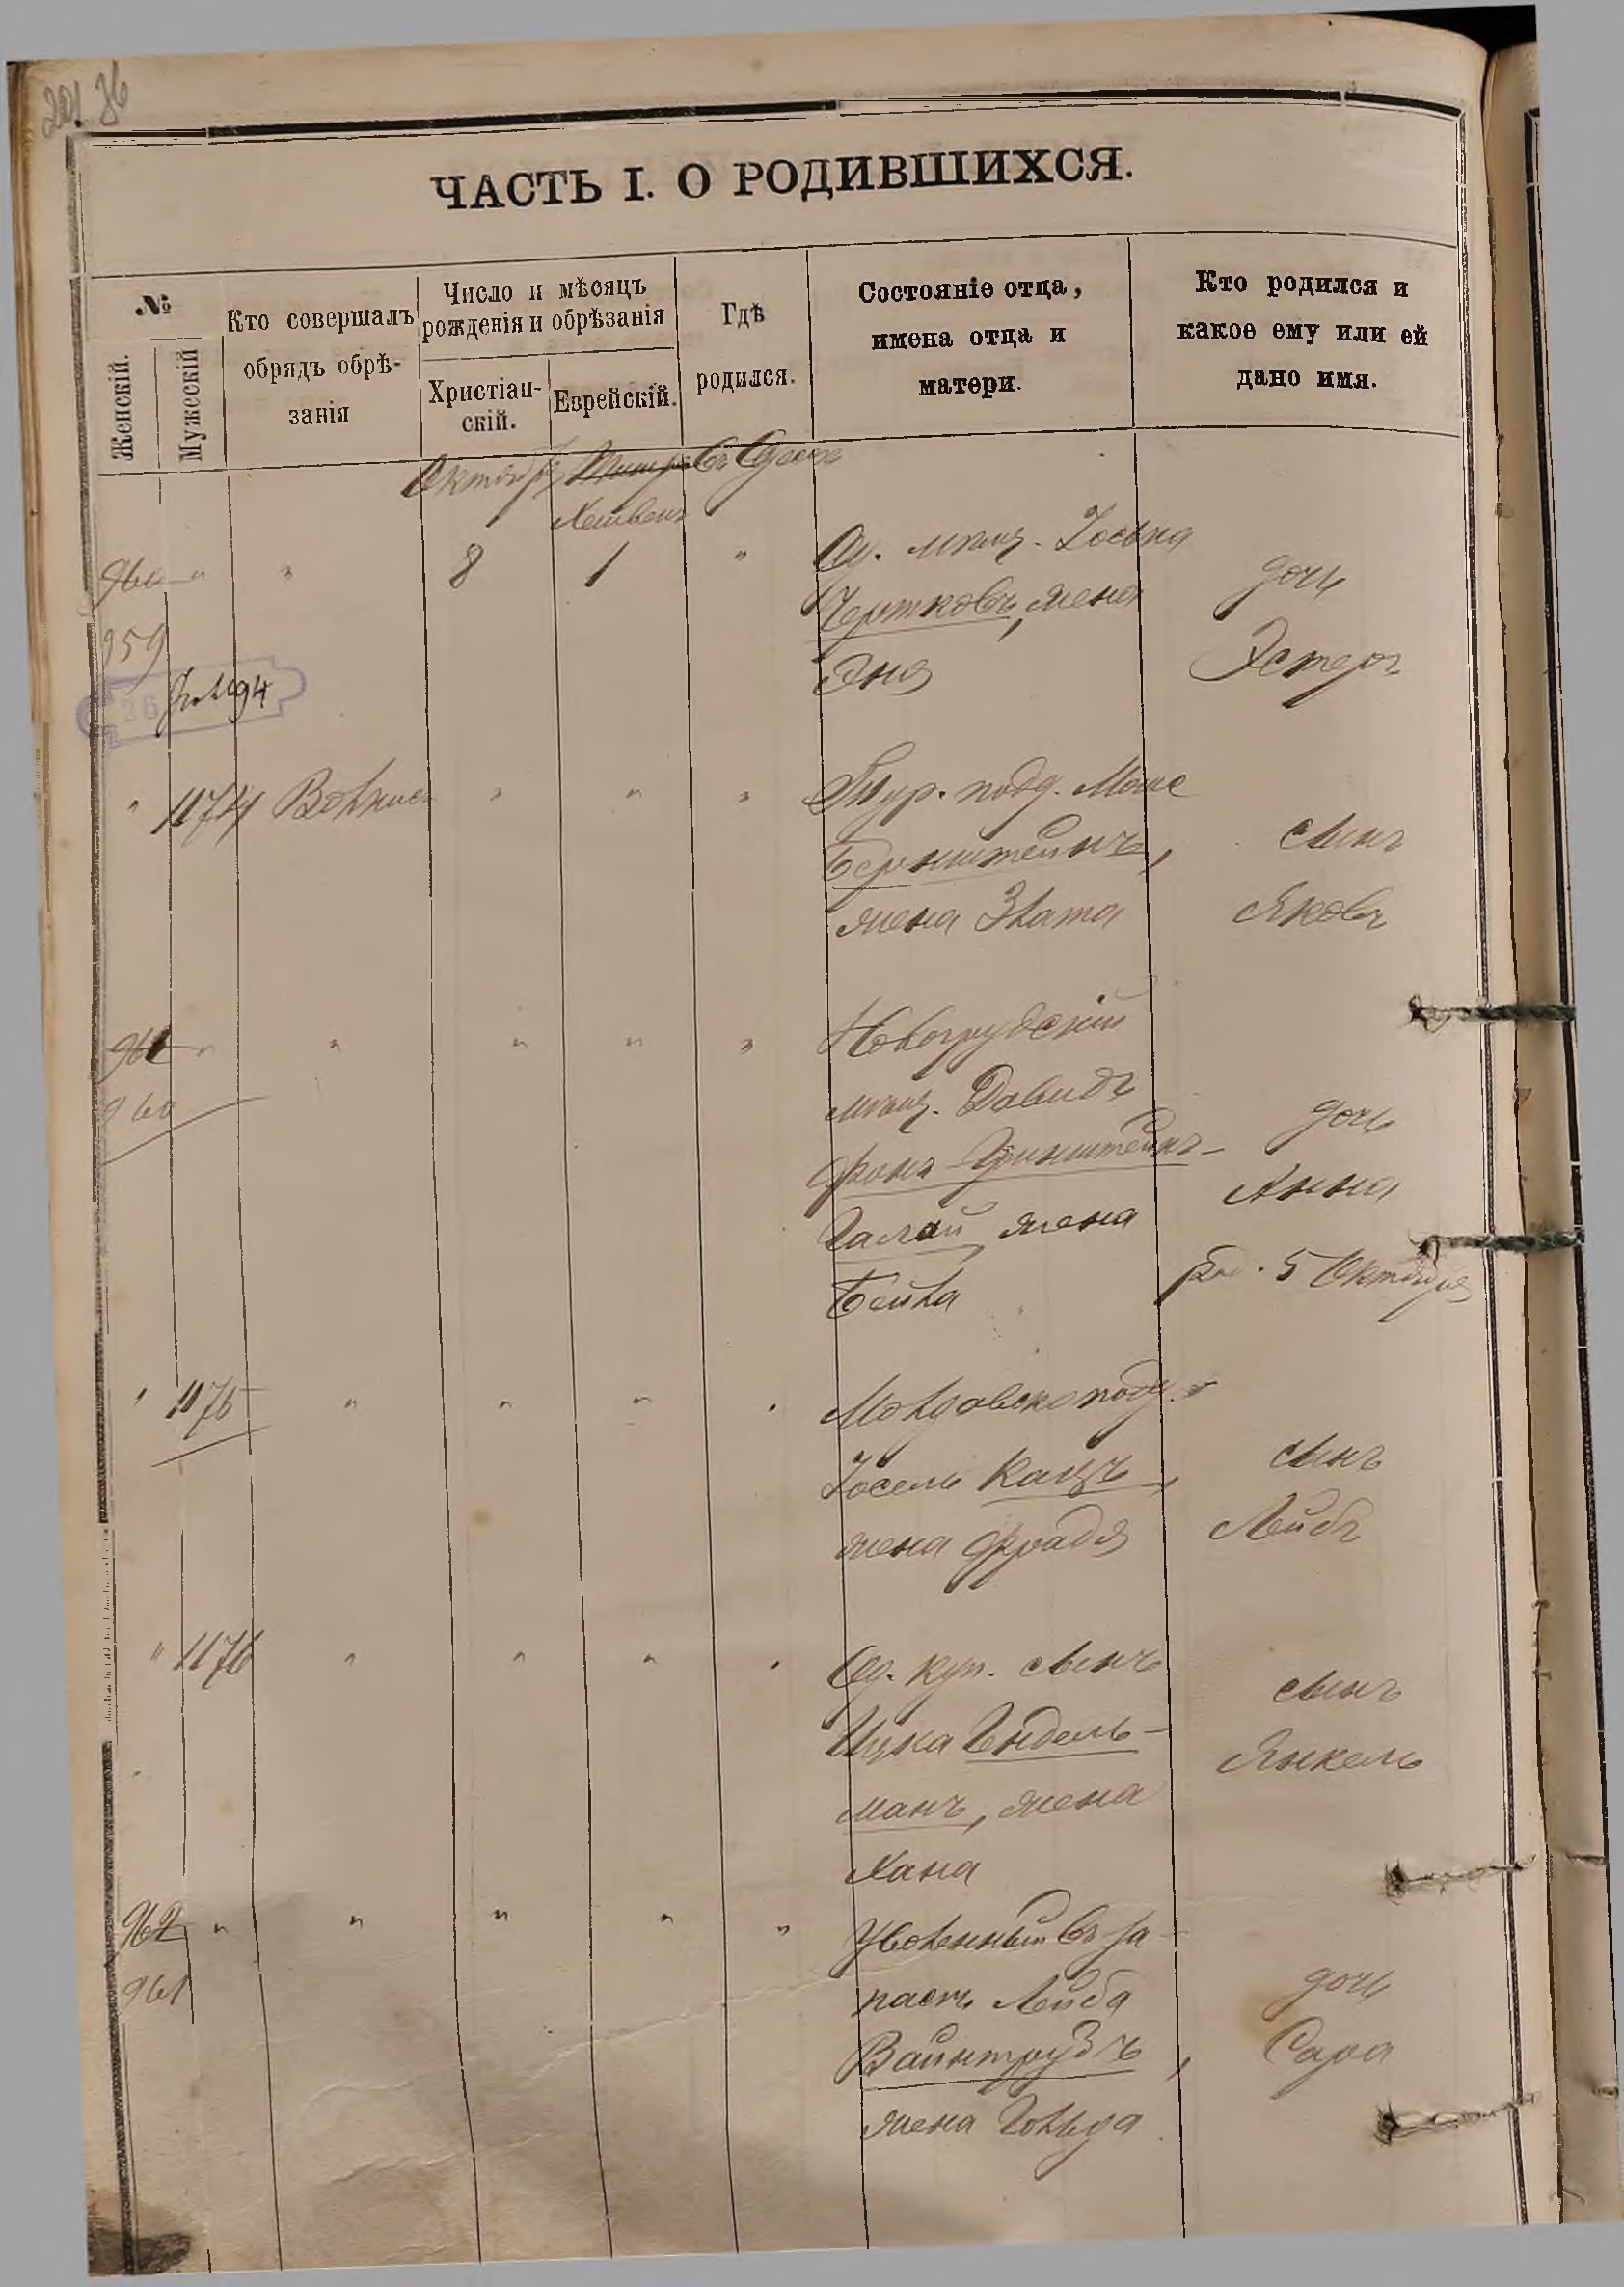 201 36
ЧАСТЬ I. О РОДИВШИХСЯ.
№
Женскій.
Мужескій
Кто совершалъ
обрядъ обрѣ-
занія
Число и мѣсяцъ
рожденія и обрѣзанія
Христіан-
скій.
Еврейскій.
Гдѣ
родился.
Состояніе отца,
имена отца и
матери.
Кто родился и
какое ему или ей
дано имя.
Октябрь Въ Одессѣ
Хешвенъ
960 " " 8 1 "
959
Од. мѣщ. Іосына
Чертковъ, жена
Эня
дочь
Эстеръ
" 1174 " " "
Тур. подд. Моше
Бернштейнъ,
жена Злата
сынъ
Яковъ
961 " " " " "
960
Новогрудскій
мѣщ. Давидъ
фонъ-Гринштейнъ-
Галай, жена
Бейла
дочь
Анна
род. 5 Октября
" 1175 " " " "
Молдавско подд.
Іосель Кацъ,
жена Фрадя
сынъ
Лейбъ
" 1176 " " " "
Од. куп. сынъ
Ицка Гндель-
манъ, жена
Хана
сынъ
Янкель
962 " " " " "
961
Уволенный въ за-
пасъ Лейба
Вайнтрубъ,
жена Гольда
дочь
Сара